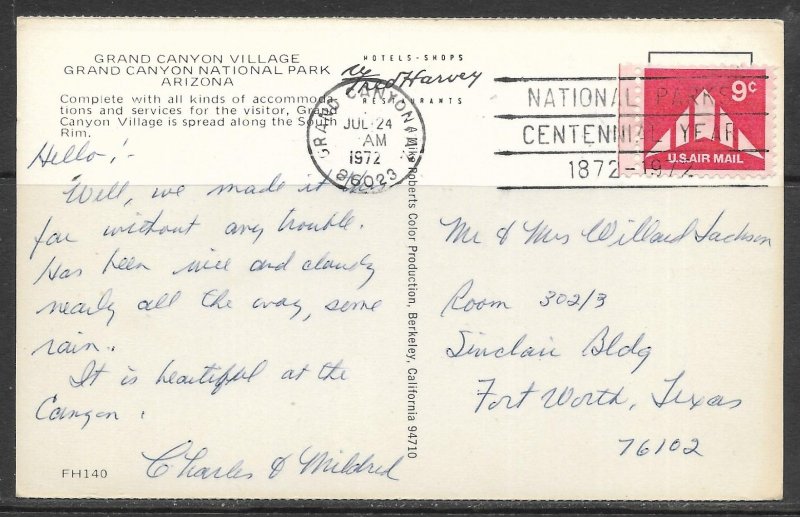 GRAND CANYON VILLAGE
GRAND CANYON NATIONAL PARK
ARIZONA
Complete with all kinds of accommoda-
tions and services for the visitor, Grand
Canyon Village is spread along the South
Rim.
HOTELS-SHOPS
Fred Harvey
RESTAURANTS
GRAND CANYON
JUL 24
AM
1972
86023
NATIONAL PARKS
CENTENNIAL YEAR
1872-1972
9c
U.S. AIR MAIL
Hello! -
Well, we made it
far without any trouble.
Has been nice and cloudy
nearly all the way, some
rain.
It is beautiful at the
Canyon.
Charles & Mildred
FH140
Mike Roberts Color Production, Berkeley, California 94710
Mr & Mrs Willard Jackson
Room 302/3
Sinclair Bldg
Fort Worth, Texas
76102